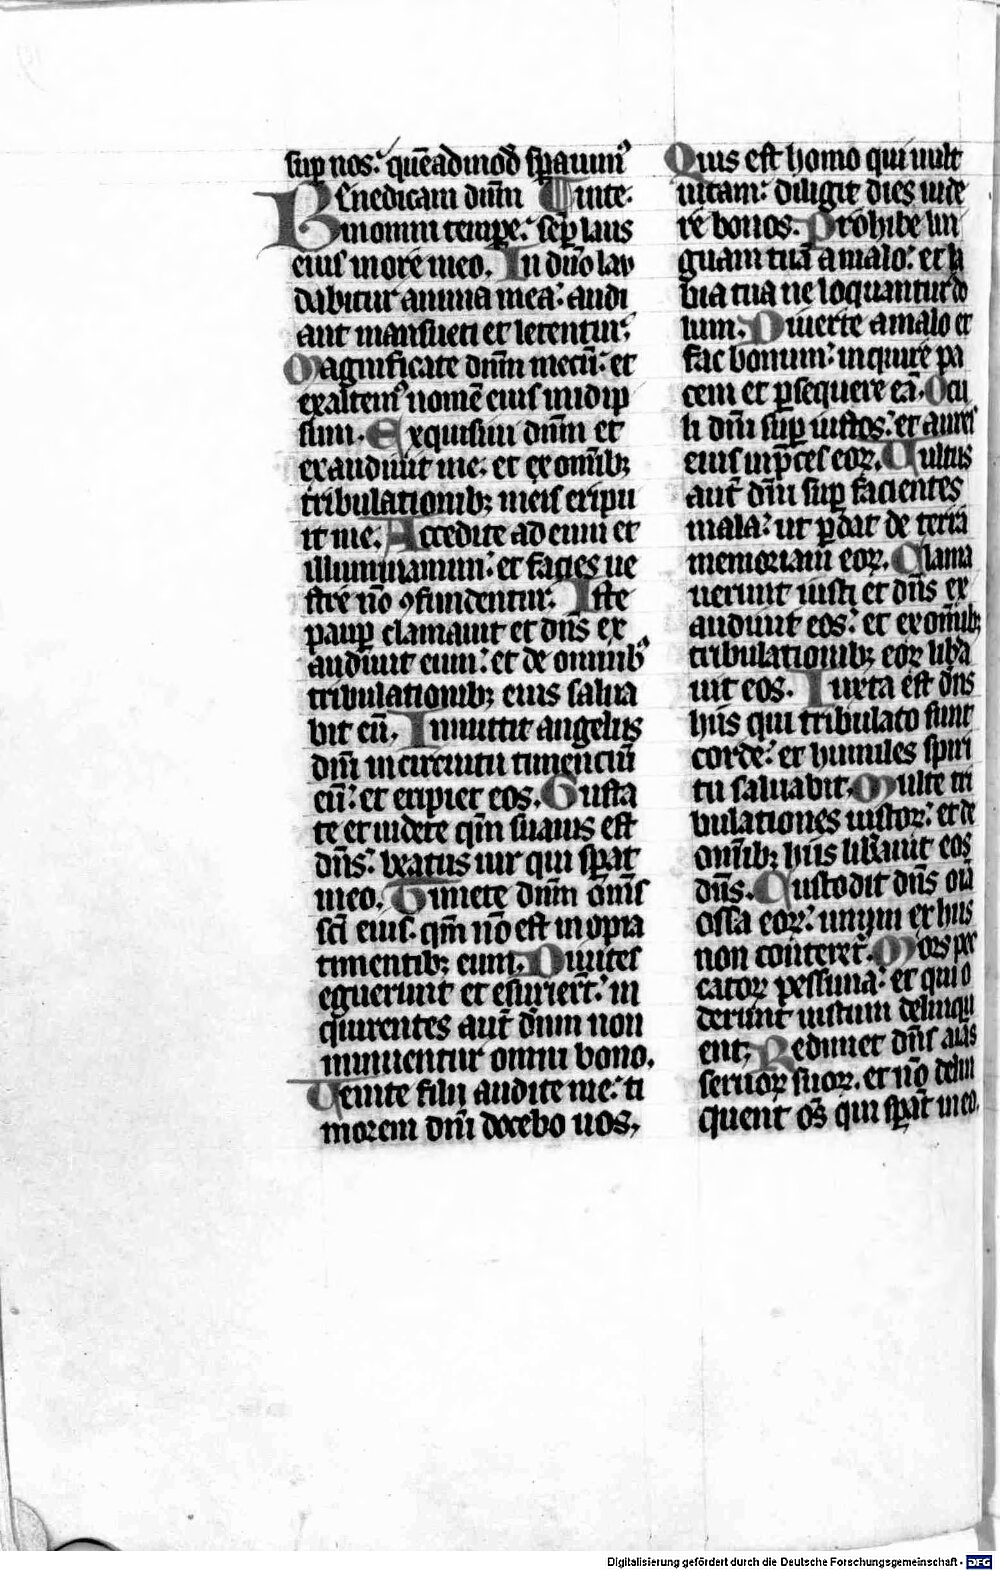 sup nos: quēadmod̄ sp̄auim⁹
Benedicam dnm̄ Uuite.
in omni tempe: sep̄ laus
eius in ore meo. In dn̄o lau
dabitur anima mea: audi
ant mansueti et letentur:
Magnificate dnm̄ mecū: et
exaltem⁹ nomē eius in idip
sum. Exquisiui dnm̄ et
exaudiuit me: et ex omīb;
tribulationib; meis eripu
it me. Accedite ad eum et
illuminamini: et facies ue
stre nō ꝯfundentur. Iste
paup clamauit et dn̄s ex
audiuit eum: et de omnib⁹
tribulationib; eius salua
bit eū. Inmittit angelus
dn̄i in circuitu timenciū
eū: et eripiet eos. Gusta
te et uidete qm̄ suauis est
dn̄s: beatus uir qui sp̄at
in eo. Timete dnm̄ om̄s
sc̄i eius: qm̄ nō est inopia
timentib; eum. Diuites
eguerunt et esuriert̄: in
quirentes aut̄ dn̄m non
minuentur omni bono.
Uenite filii audite me: ti
morem dn̄i docebo uos.
Quis est homo qui uult
uitam: diligit dies uide
re bonos. Prohibe lin
guam tuā a malo: et la
bia tua ne loquantur do
lum. Diuerte a malo et
fac bonum: inquire pa
cem et ꝑsequere eā. Ocu
li dn̄i sup iustos: et aures
eius in p̄ces eoꝝ. Uultus
aut̄ dn̄i sup facientes
mala: ut ꝑdat de terra
memoriam eoꝝ. Clama
uerunt iusti et dn̄s ex
audiuit eos: et ex omīb;
tribulationib; eoꝝ libā
uit eos. Iuxta est dn̄s
hiis qui tribulato sunt
corde: et humiles spiri
tu saluabit. Multe tri
bulationes iustoꝝ: et de
omīb; hiis libāuit eos
dn̄s. Custodit dn̄s oīa
ossa eoꝝ: unum ex hiis
non conteret̄. Mors pec
catoꝝ pessima: et qui o
derunt iustum delinqu
ent. Redimet dn̄s aīas
seruoꝝ suoꝝ: et nō delin
quent om̄s qui sp̄at in eo.
Digitalisierung gefördert durch die Deutsche Forschungsgemeinschaft - DFG